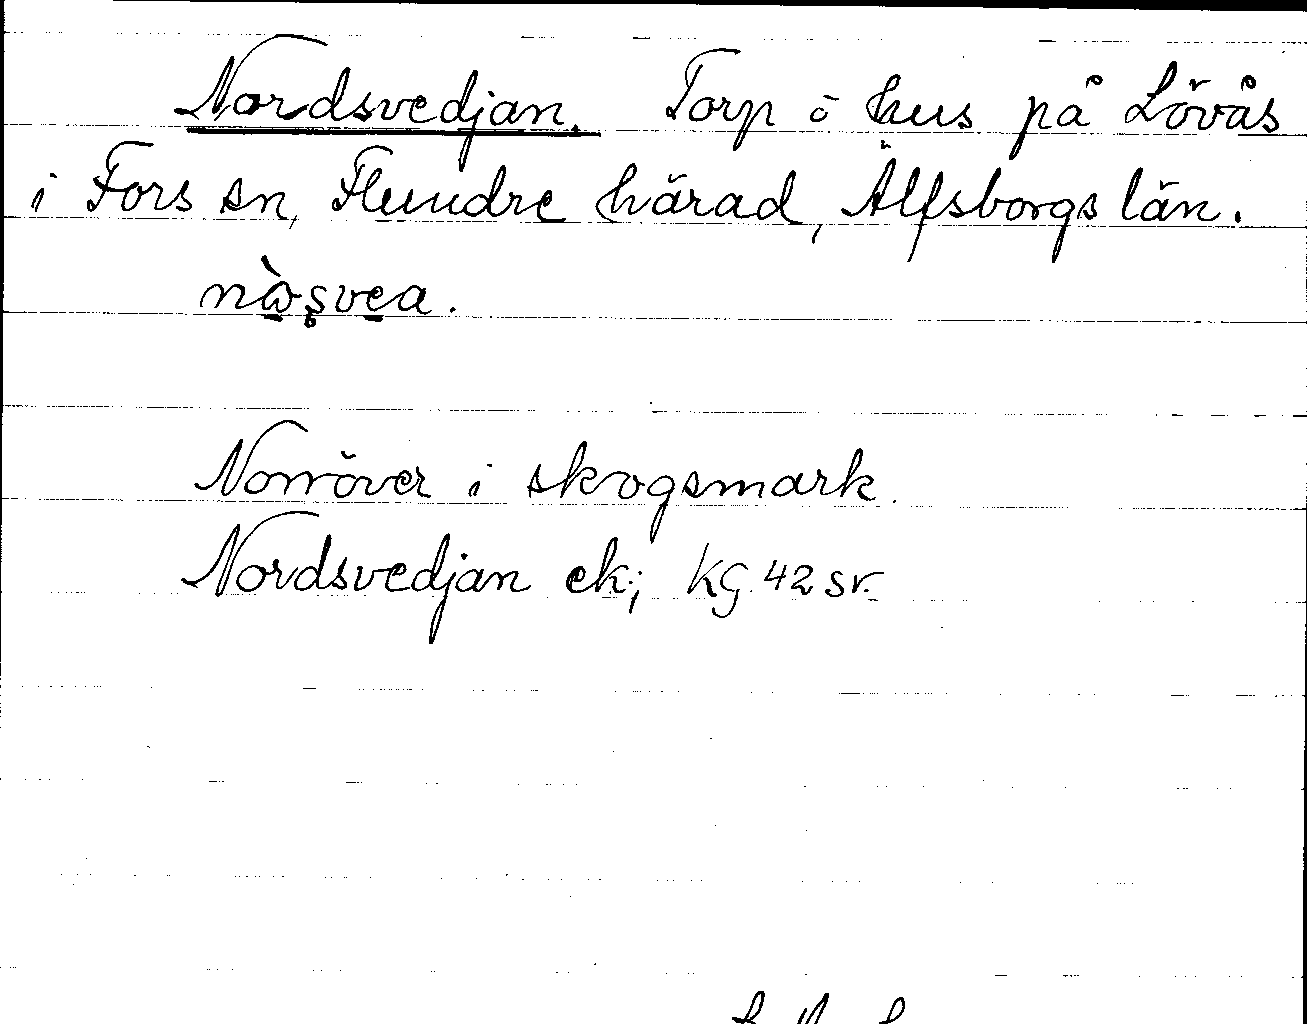 Nordsvedjan. Torp o hus på Lövås
i Fors sn, Flundre härad, Älfsborgs län.
nὼşvea.
Norröver i skogsmark.
Nordsvedjan ek; KG 42 sv.